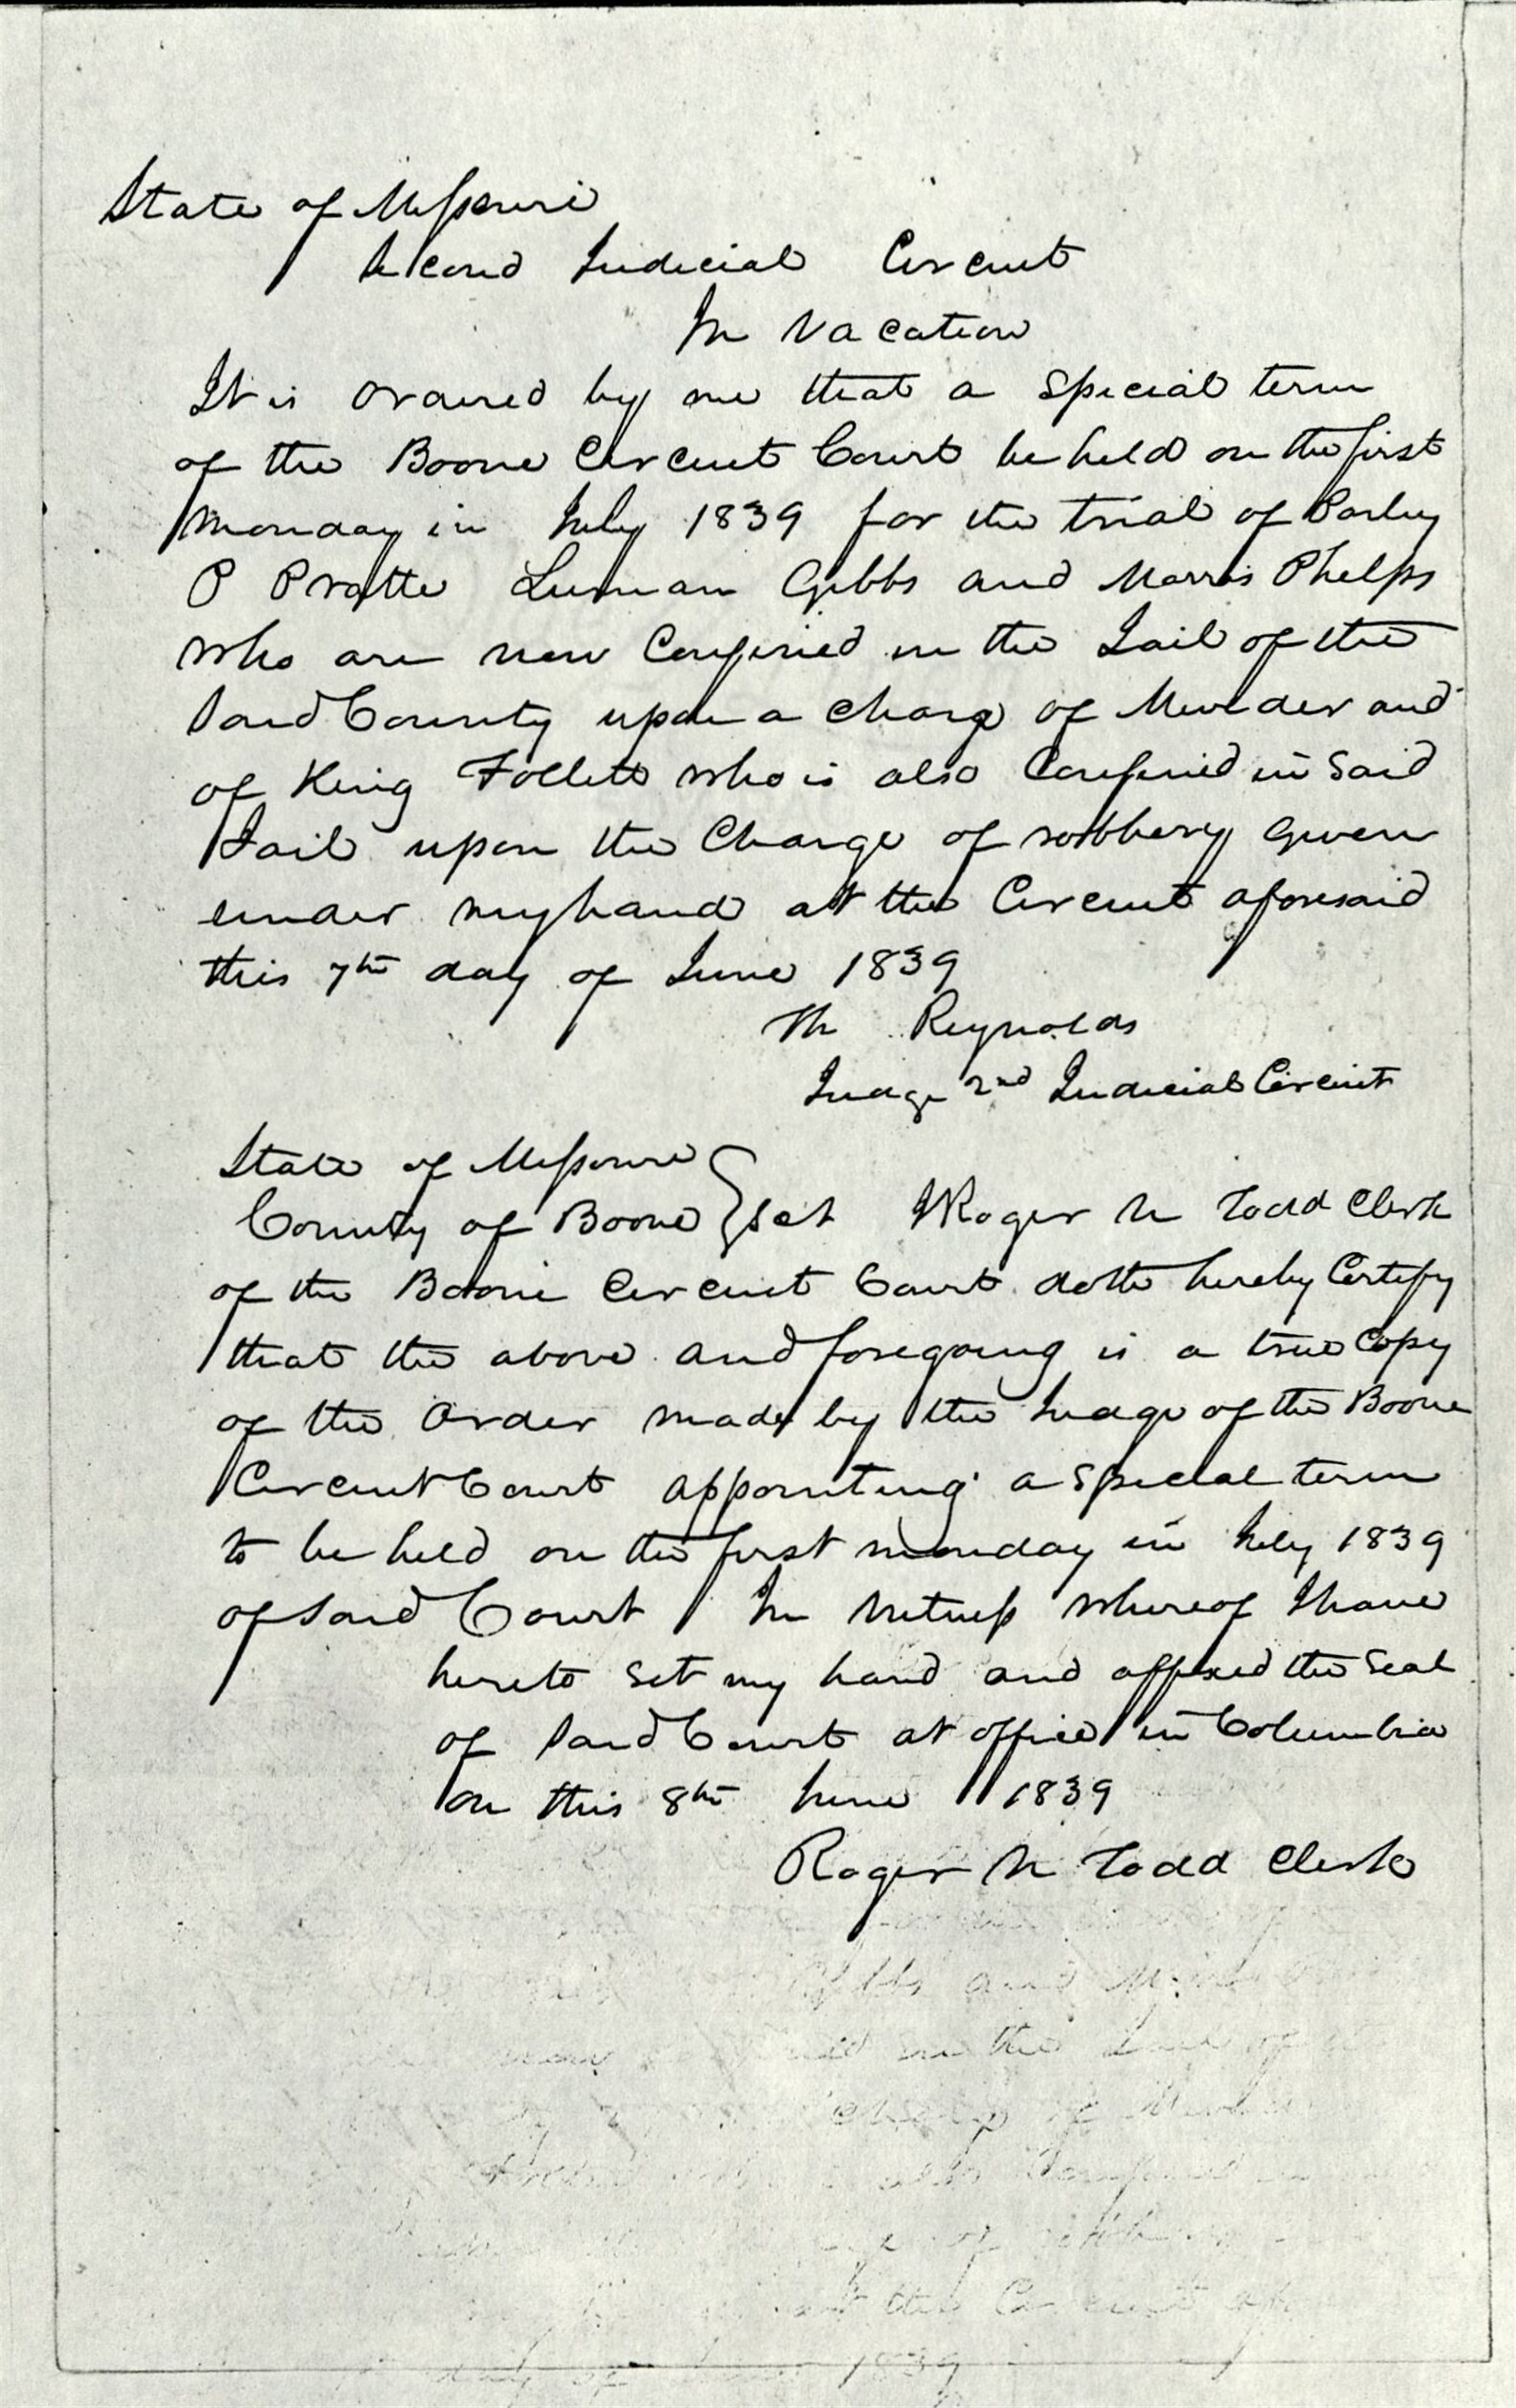 State of Missouri
Second Judicial Circuit
In Vacation
It is ordered by me that a Special term
of the Boone Circuit Court be held on the first
monday in July 1839 for the trial of Parley
P Pratte Luman Gibbs and Morris Phelps
who are now Confined in the Jail of the
Said County upon a charge of Murder and
of King Follett who is also Confined in Said
Jail upon the Charge of robbery Given
under my hand at the Circuit aforesaid
this 7th day of June 1839
Th Reynolds
Judge 2nd Judicial Circuit
State of Missouri
County of Boone } Sct I Roger N Todd Clerk
of the Boone Circuit Court doth hereby Certify
that the above and foregoing is a true Copy
of the Order made by the Judge of the Boone
Circuit Court appointing a Special term
to be held on the first monday in July 1839
of Said Court In Witness Whereof I have
hereto Set my hand and affixed the Seal
of Said Court at office in Columbia
on this 8th June 1839
Roger N Todd Clerk
Gibbs and
in the Jail of
charge of
also Confined
of
the Circuit
day of 1839